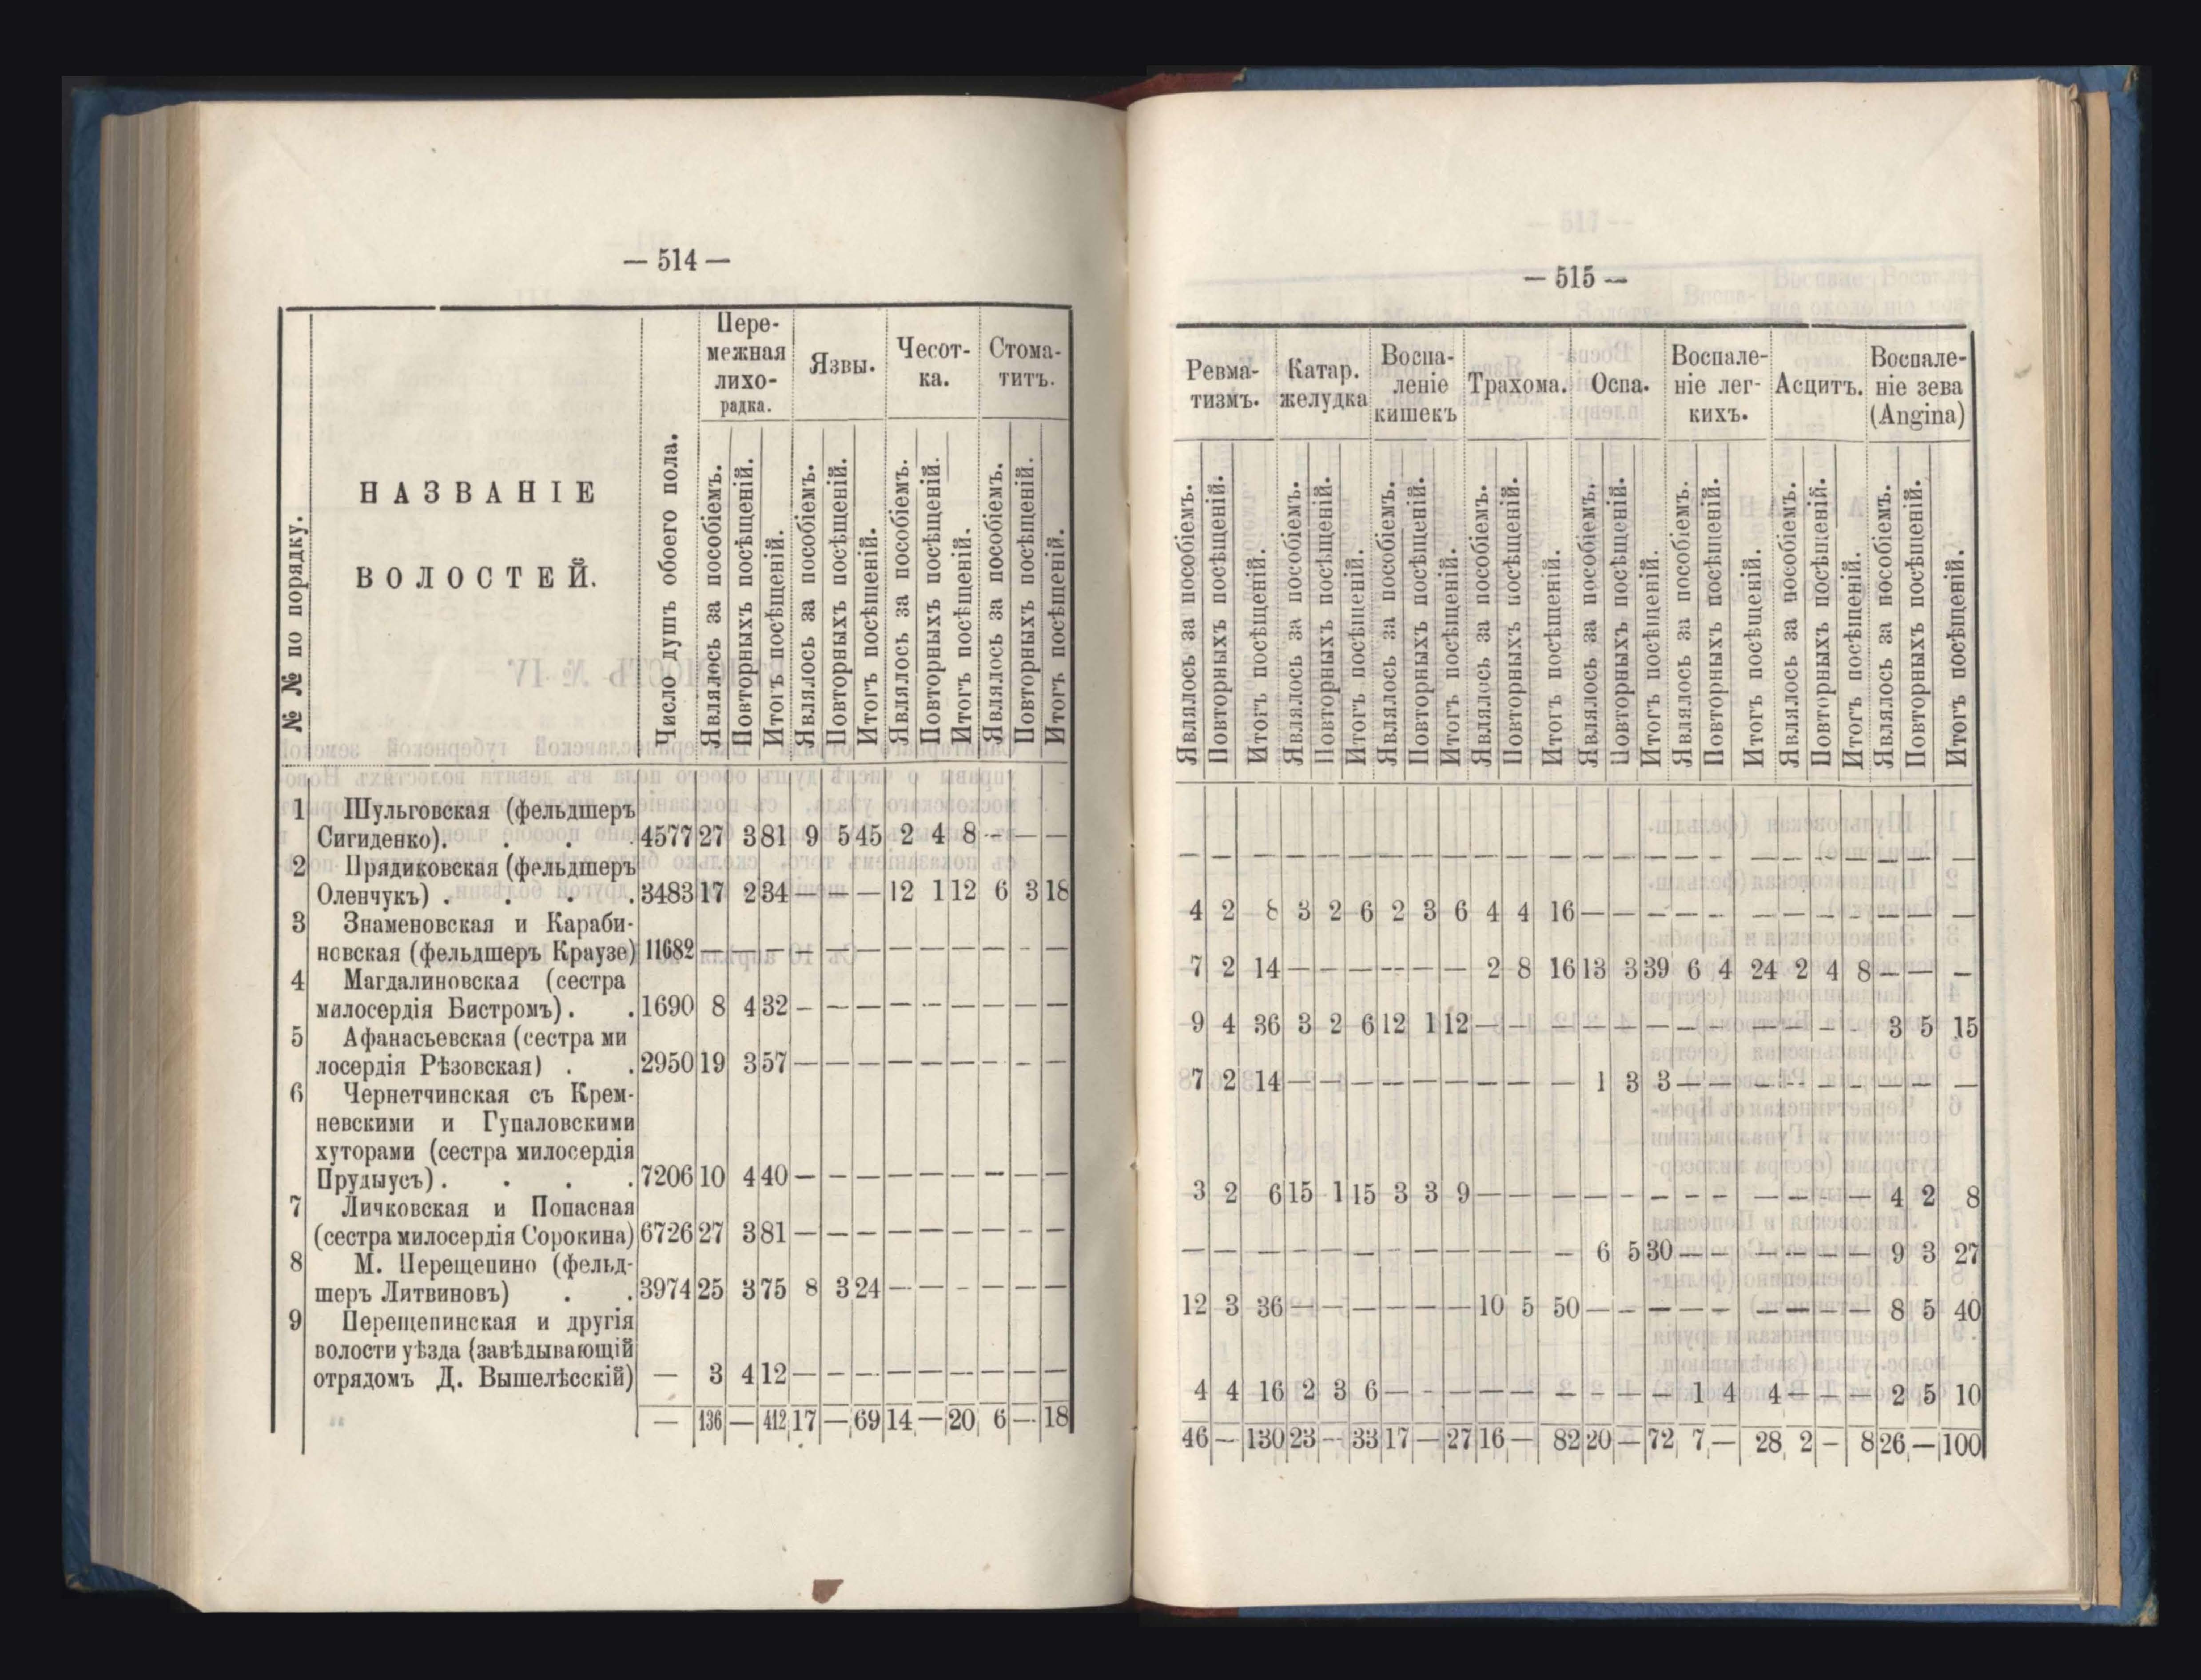 — 514 —
№ № по порядку.
НАЗВАНІЕ
ВОЛОСТЕЙ.
Число душъ обоего пола.
Пере-
межная
лихо-
радка.
Язвы.
Чесот-
ка.
Стома-
титъ.
Являлось за пособіемъ.
Повторныхъ посѣщеній.
Итогъ посѣщеній.
Являлось за пособіемъ.
Повторныхъ посѣщеній.
Итогъ посѣщеній.
Являлось за пособіемъ.
Повторныхъ посѣщеній.
Итогъ посѣщеній.
Являлось за пособіемъ.
Повторныхъ посѣщеній.
Итогъ посѣщеній.
1 Шульговская (фельдшеръ
Сигиденко). . . . 4577 27 3 81 9 5 45 2 4 8 — — —
2 Прядиковская (фельдшеръ
Оленчукъ) . . . . 3483 17 2 34 — — — 12 1 12 6 3 18
3 Знаменовская и Караби-
новская (фельдшеръ Краузе) 11682 — — — — — — — — — — — —
4 Магдалиновская (сестра
милосердія Бистромъ). . . 1690 8 4 32 — — — — — — — — —
5 Афанасьевская (сестра ми
лосердія Рѣзовская) . . 2950 19 3 57 — — — — — — — — —
6 Чернетчинская съ Крем-
невскими и Гупаловскими
хуторами (сестра милосердія
Прудыусъ). . . . 7206 10 4 40 — — — — — — — — —
7 Личковская и Попасная
(сестра милосердія Сорокина) 6726 27 3 81 — — — — — — — — —
8 М. Перещепино (фельд-
шеръ Литвиновъ) . . 3974 25 3 75 8 3 24 — — — — — —
9 Перещепинская и другія
волости уѣзда (завѣдывающій
отрядомъ Д. Вышелѣсскій) — 3 4 12 — — — — — — — — —
— 136 — 412 17 — 69 14 — 20 6 — 18
— 515 —
Ревма-
тизмъ.
Катар.
желудка
Воспа-
леніе
кишекъ
Трахома.
Оспа.
Воспале-
ніе лег-
кихъ.
Асцитъ.
Воспале-
ніе зева
(Angina)
Являлось за пособіемъ.
Повторныхъ посѣщеній.
Итогъ посѣщеній.
Являлось за пособіемъ.
Повторныхъ посѣщеній.
Итогъ посѣщеній.
Являлось за пособіемъ.
Повторныхъ посѣщеній.
Итогъ посѣщеній.
Являлось за пособіемъ.
Повторныхъ посѣщеній.
Итогъ посѣщеній.
Являлось за пособіемъ.
Повторныхъ посѣщеній.
Итогъ посѣщеній.
Являлось за пособіемъ.
Повторныхъ посѣщеній.
Итогъ посѣщеній.
Являлось за пособіемъ.
Повторныхъ посѣщеній.
Итогъ посѣщеній.
Являлось за пособіемъ.
Повторныхъ посѣщеній.
Итогъ посѣщеній.
— — — — — — — — — — — — — — — — — — — — — — — —
4 2 8 3 2 6 2 3 6 4 4 16 — — — — — — — — — — — —
7 2 14 — — — — — — 2 8 16 13 3 39 6 4 24 2 4 8 — — —
9 4 36 3 2 6 12 1 12 — — — — — — — — — — — — 3 5 15
7 2 14 — — — — — — — — — 1 3 3 — — — — — — — — —
3 2 6 15 1 15 3 3 9 — — — — — — — — — — — — 4 2 8
— — — — — — — — — — — — 6 5 30 — — — — — — 9 3 27
12 3 36 — — — — — — 10 5 50 — — — — — — — — — 8 5 40
4 4 16 2 3 6 — — — — — — — — — 1 4 4 — — — 2 5 10
46 — 130 23 — 33 17 — 27 16 — 82 20 — 72 7 — 28 2 — 8 26 — 100